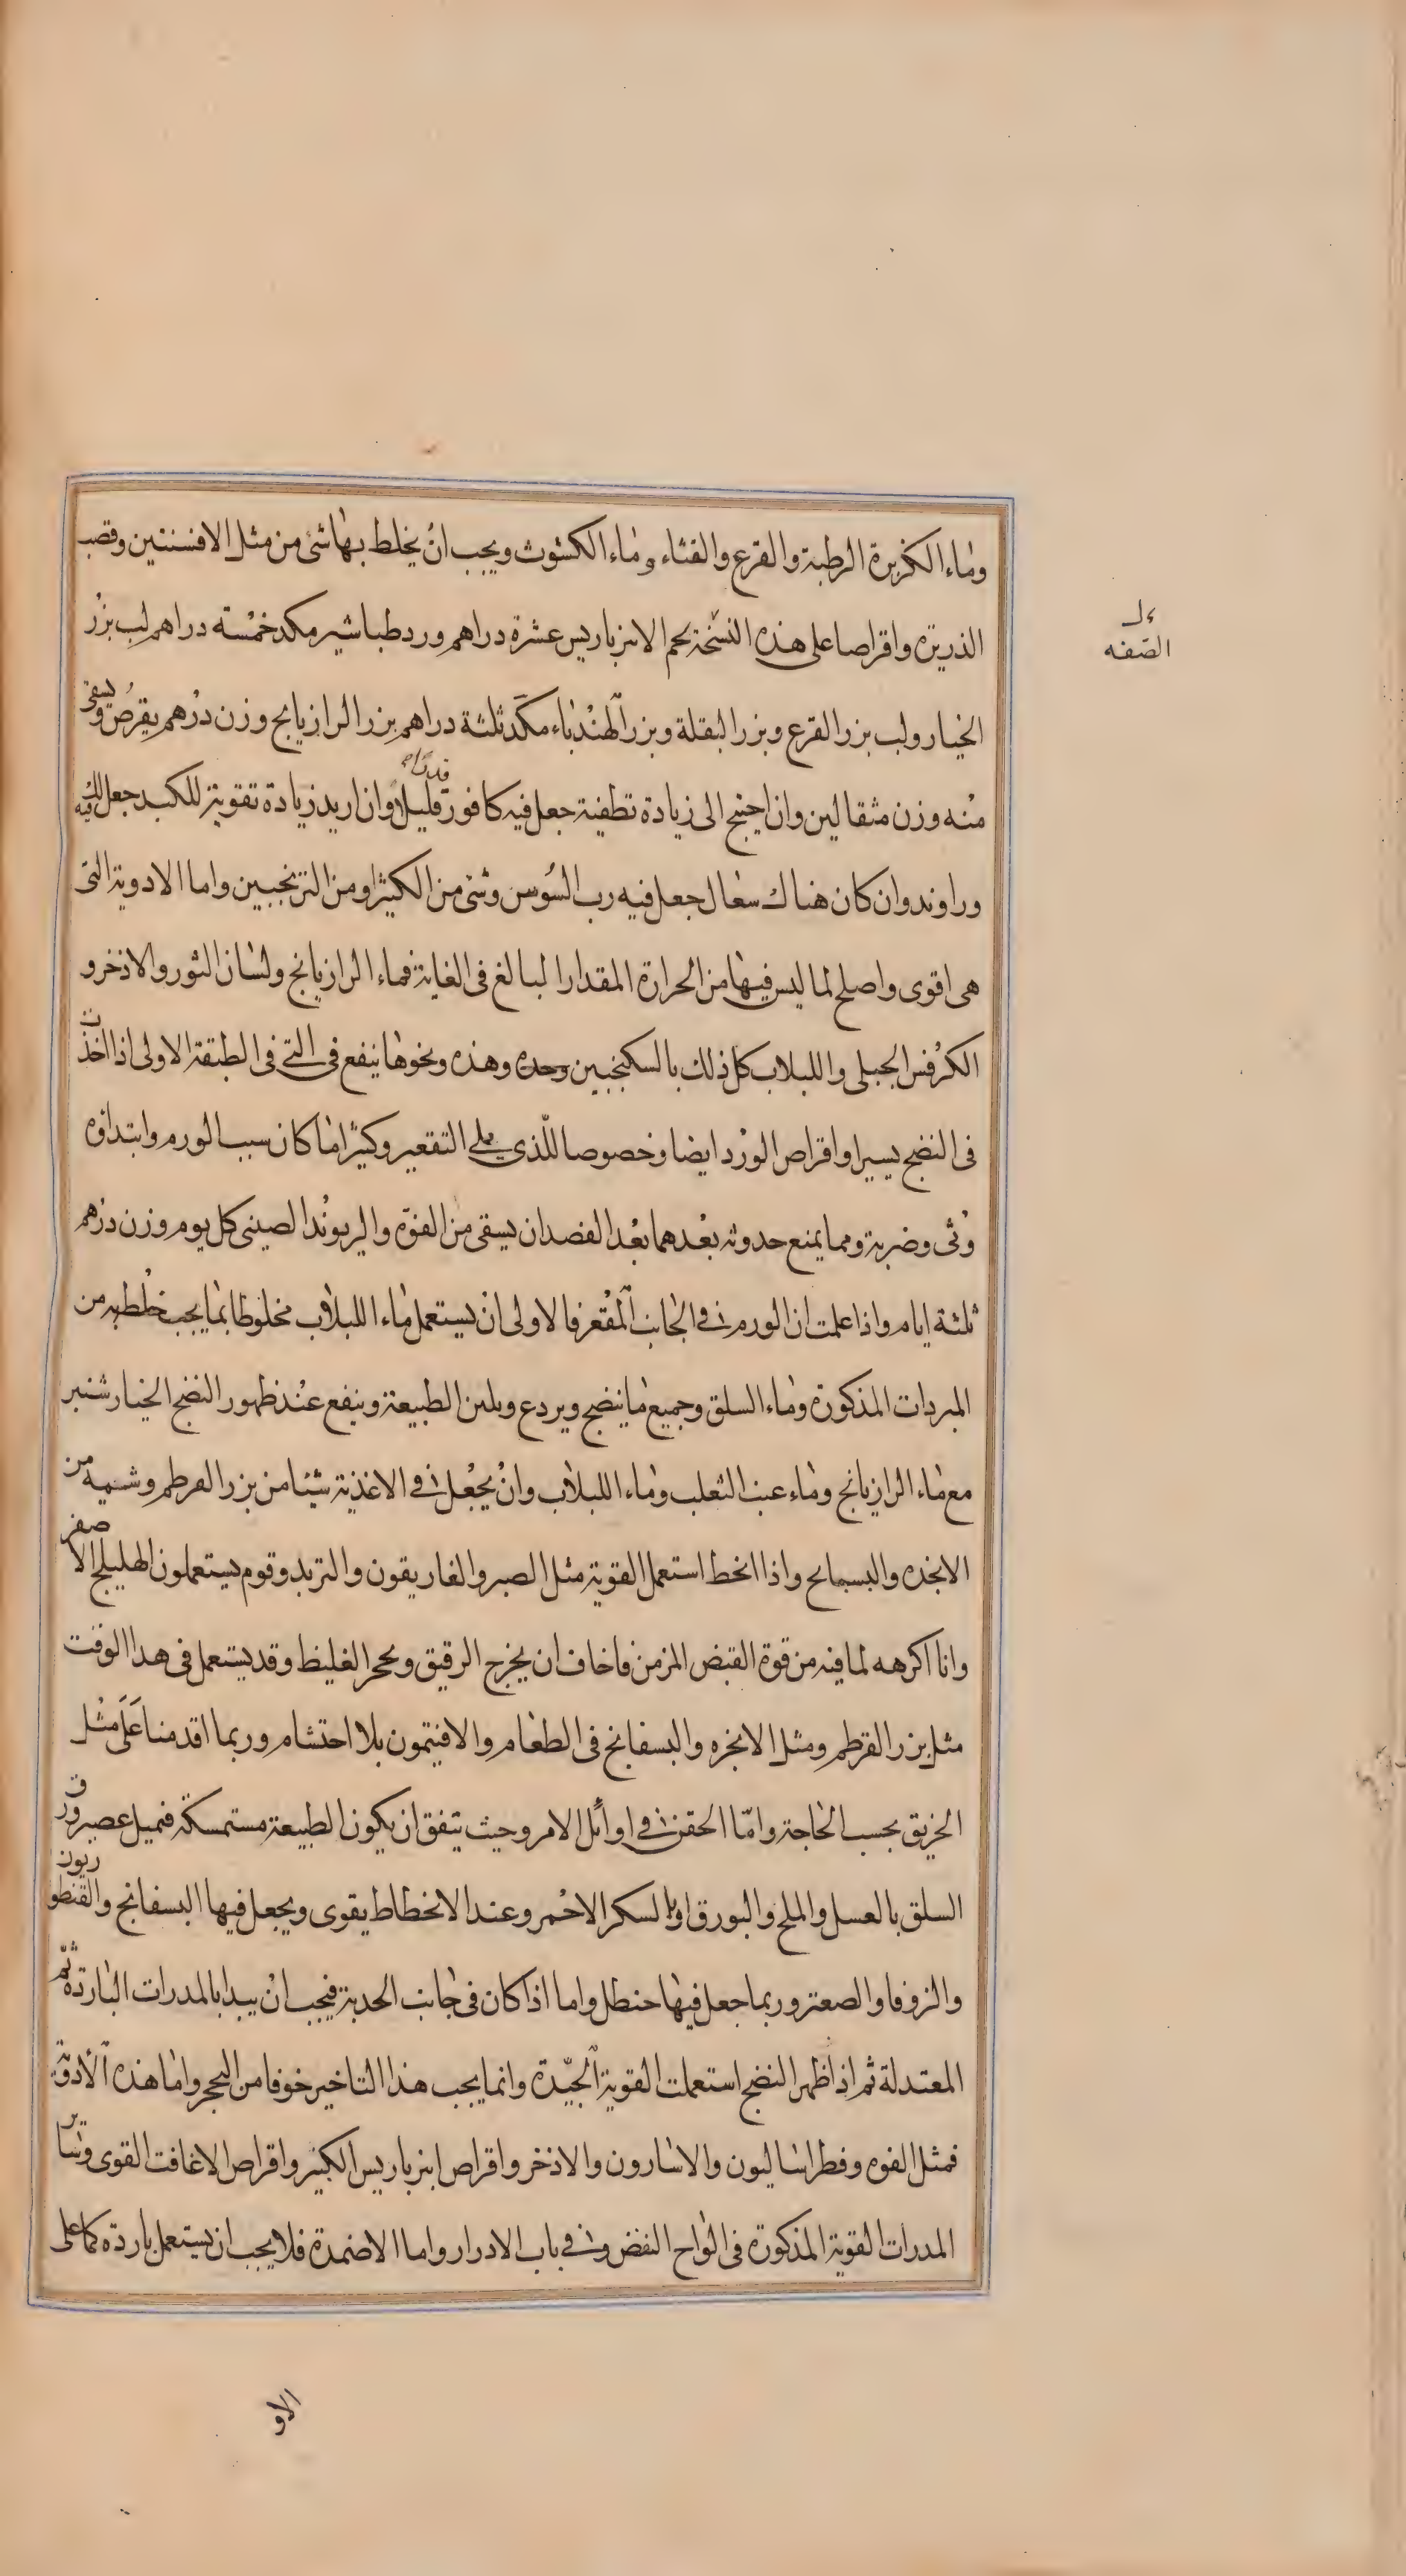 وماء الكزبرة الرطبة والقرع والقثاء وماء الكشوث ويجب ان يخلط بها شئ من مثل الافسنتين وقصب
الذريرة واقراصا على هذه النسخة لحم الانبرباريس عشرة دراهم ورد طباشير مكد خمسة دراهم لب بزر
الخيار ولب بزر القرع وبزر البقلة وبزر الهندباء مكد ثلثة دراهم بزر الرازيانج وزن درهم يقرص ويسقى
منه وزن مثقالين وان احتيج الى زيادة تطفية جعل فيه كافور قليلا وان اريد زيادة تقوية للكبد جعل فيه لك
وراوند وان كان هناك سعال جعل فيه رب السوس وشئ من الكثيرا ومن الترنجبين واما الادوية التى
هى اقوى واصلح لما ليس فيها من الحرارة المقدار البالغ فى الغاية فماء الرازيانج ولسان الثور والاذخر و
الكرفس الجبلى واللبلاب كل ذلك بالسكنجبين وحده وهذه ونحوها ينفع فى التى فى الطبقة الاولى اذا اخذت
فى النضج يسيرا واقراص الورد ايضا وخصوصا للذى يلى التقعير وكثيرا ما كان سبب الورم وابتداؤه
وثى وضربة ومما يمنع حدوثه بعدهما بعد الفصد ان يسقى من الفوه والريوند الصينى كل يوم وزن درهم
ثلثة ايام واذا علمت ان الورم فى الجانب المقعر فالاولى ان يستعمل ماء اللبلاب مخلوطا بما يجب خلطه به من
المبردات المذكورة وماء السلق وجميع ما ينضج ويردع ويلين الطبيعة وينفع عند ظهور النضج الخيارشنبر
مع ماء الرازيانج وماء عنب الثعلب وماء اللبلاب وان يجعل فى الاغذية شيئا من بزر القرطم وشئ من
الانجذه والبسبايج واذا انحط استعمل القوية مثل الصبر والغاريقون والتربد وقوم يستعملون الهليلج الاصفر
وانا اكرهه لما فيه من قوة القبض المزمن فاخاف ان يخرج الرقيق ويحجر الغليظ وقد يستعمل فى هذا الوقت
مثل بزر القرطم ومثل الانجره والبسفانج فى الطعام والافتيمون بلا احتشام وربما اقدمنا على مثل
الخربق بحسب الحاجة واما الحقن فى اوائل الامر وحيث يتفق ان يكون الطبيعة مستمسكة فميل عصير ورق
السلق بالعسل والملح والبورق او بالسكر الاحمر وعند الانحطاط يقوى ويجعل فيها البسفانج والقنطوريون
والزوفا والصعتر وربما جعل فيها حنظل واما اذا كان فى جانب الحدبة فيجب ان يبدا بالمدرات الباردة ثم
المعتدلة ثم اذا ظهر النضج استعملت القوية الجيدة وانما يجب هذا التاخير خوفا من التحجر واما هذه الادوية
فمثل الفوه وفطراساليون والاسارون والاذخر واقراص انبرباريس الكبير واقراص الاغافت القوى وساير
المدرات القوية المذكورة فى الواح النفض وفى باب الادرار واما الاضمدة فلا يجب ان يستعمل باردة كما على
الصفه
الاو